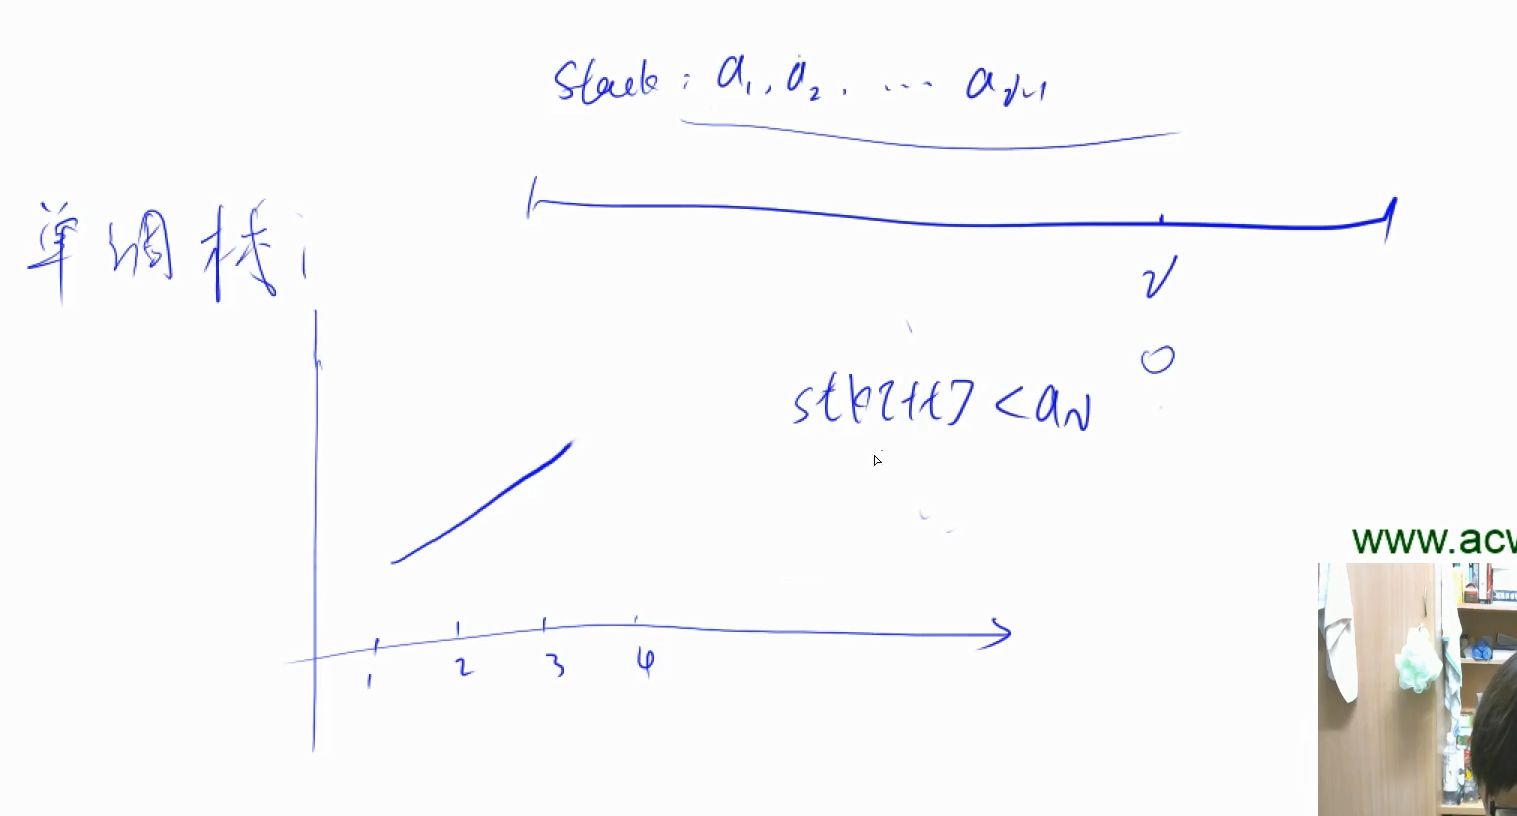 stack: a1, a2, ... ai-1
单调栈:
i
stk[tt] < ai
1 2 3 4
www.acw